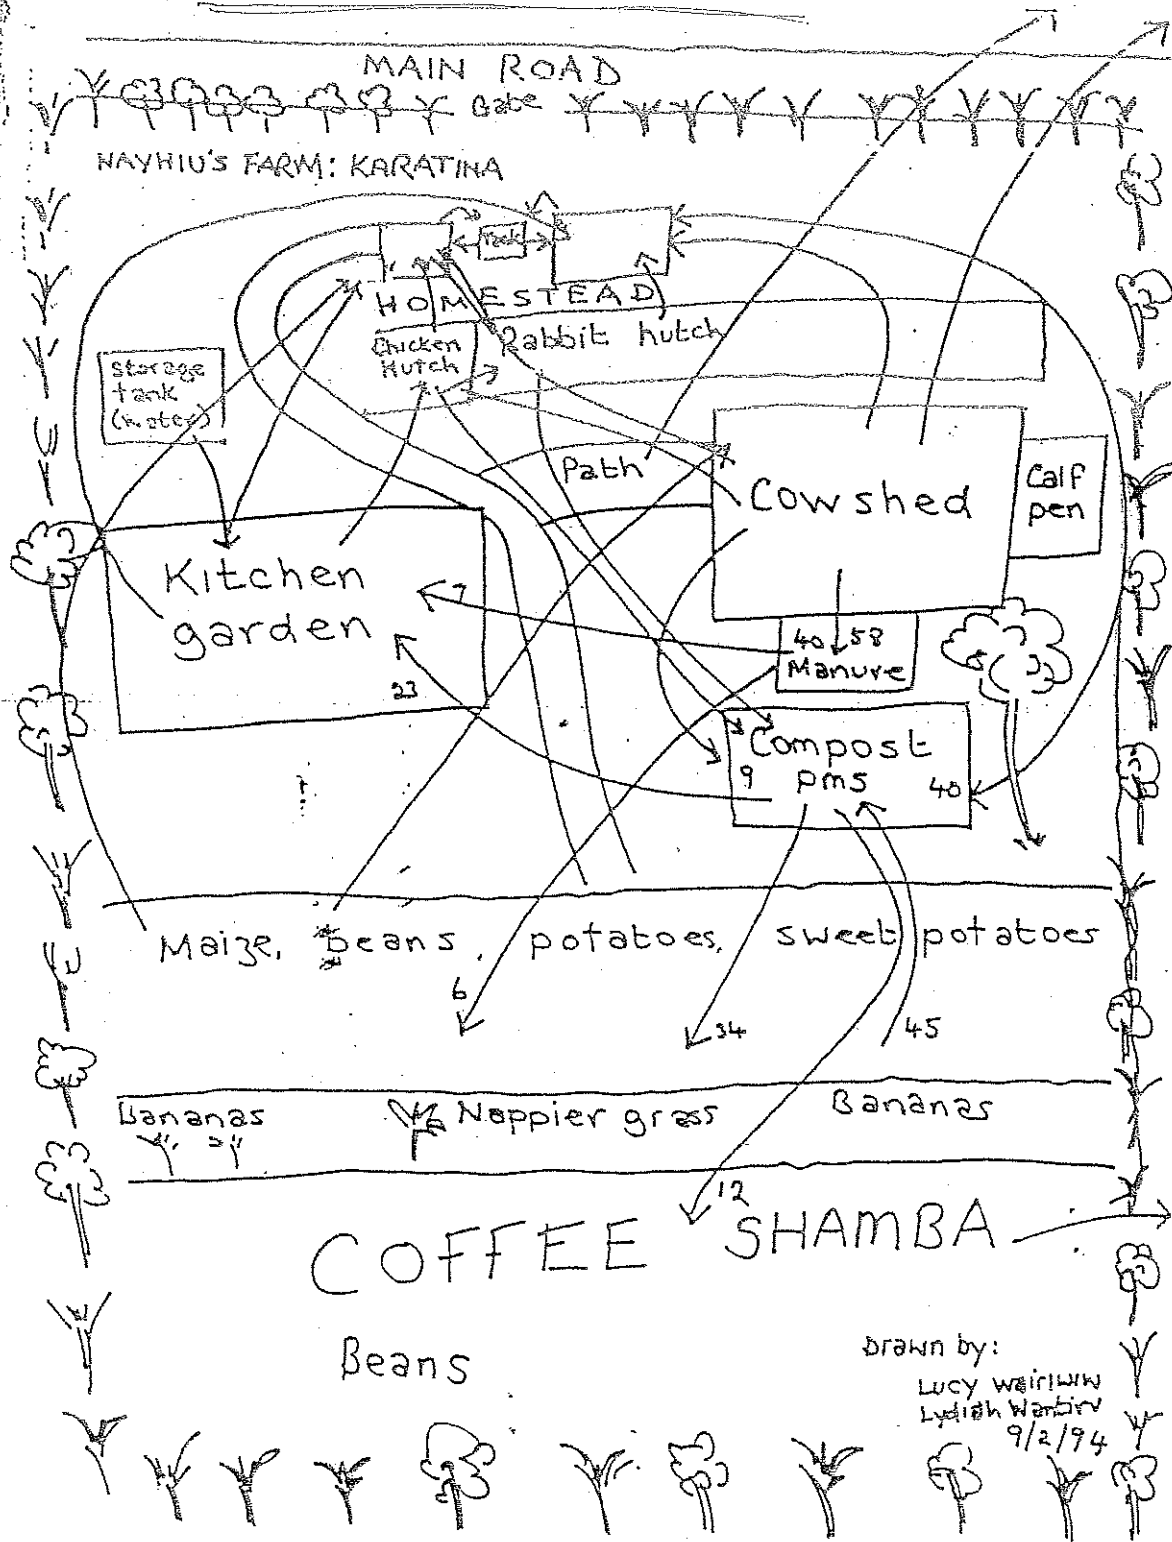 MAIN ROAD
Gate
NAYHIU'S FARM: KARATINA
Tank
HOMESTEAD
Chicken
Hutch
Rabbit hutch
Storage
tank
(Water)
Path
Cowshed
Calf
pen
Kitchen
garden
23
40 58
Manure
Compost
9
40
Maize, beans, potatoes, sweet potatoes
6
34
45
Bananas
Nappier grass
Bananas
12
COFFEE SHAMBA
Beans
Drawn by:
Lucy
Lydiah
9/2/94